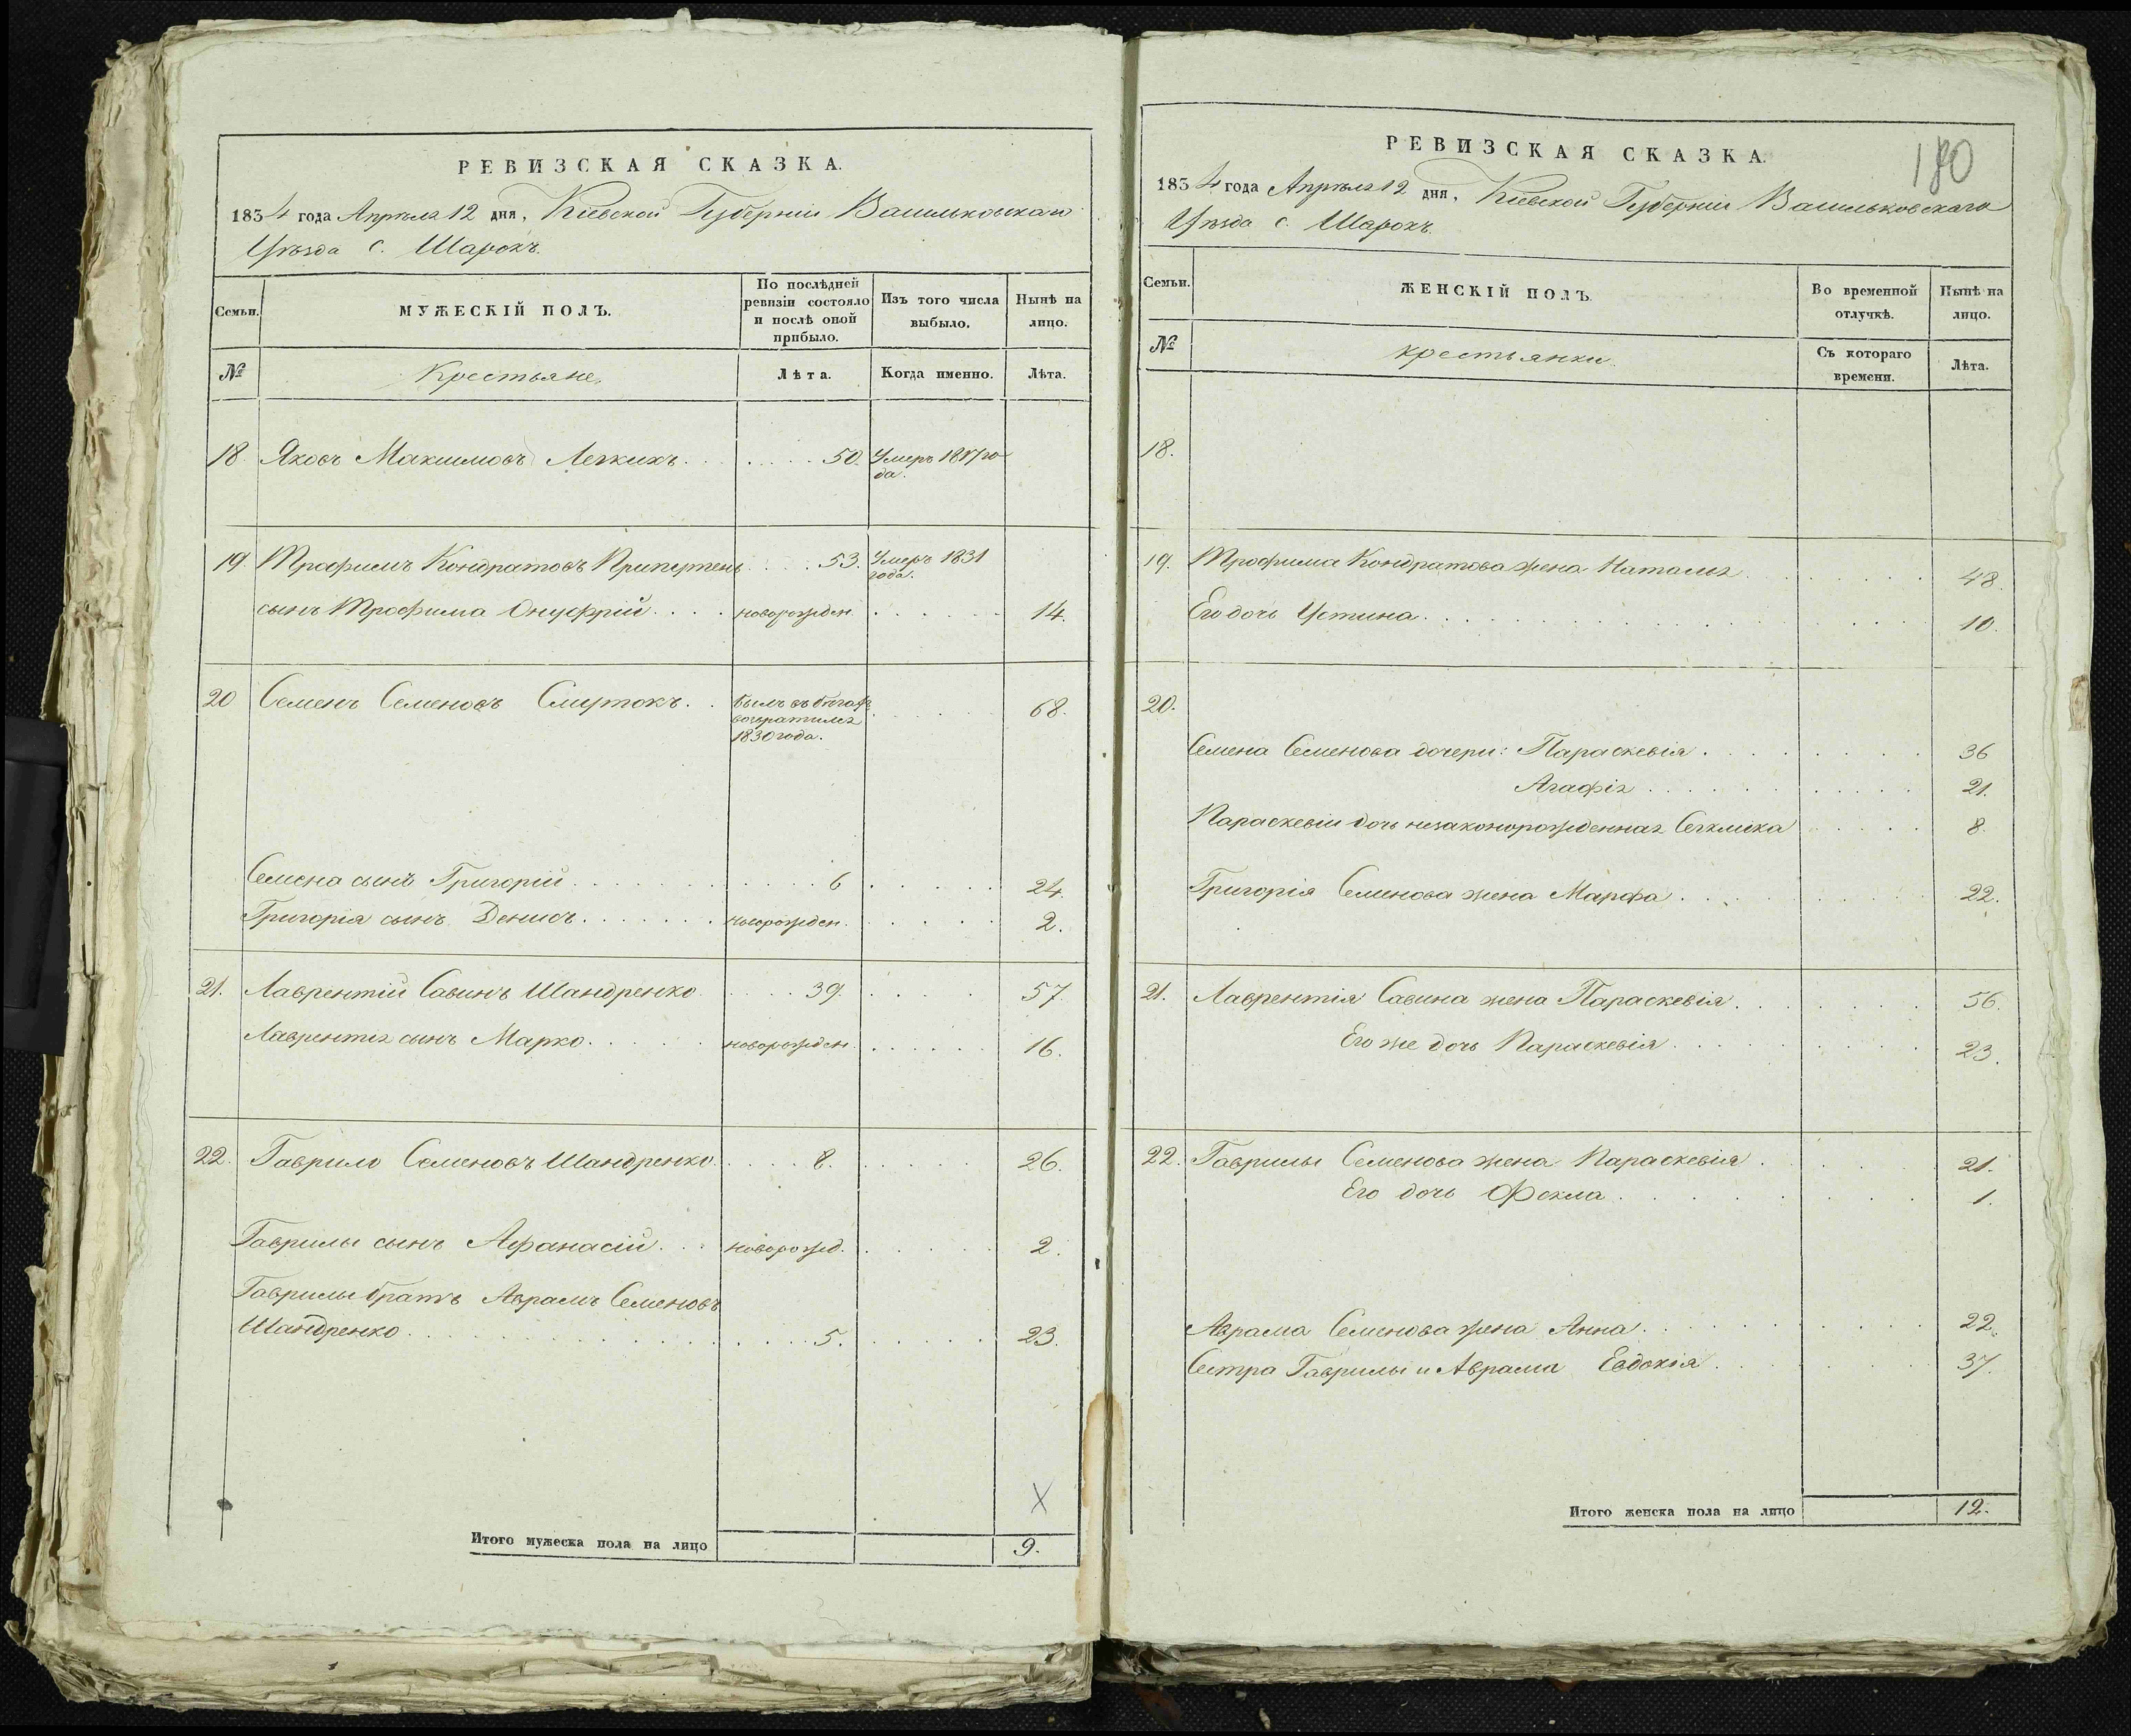 РЕВИЗСКАЯ СКАЗКА.
1834 года Апрѣля 12 дня, Кіевской Губерніи Васильковскаго
Уѣзда с. Шарокъ.
Семьи.
МУЖЕСКІЙ ПОЛЪ.
По послѣдней ревизіи состояло и послѣ оной прибыло.
Изъ того числа выбыло.
Нынѣ на лицо.
№
Крестьяне.
Лѣта.
Когда именно.
Лѣта.
18 Яковъ Максимовъ Легкихъ. 50. Умеръ 18 го
да.
19 Трофимъ Кондратовъ Приперпень 53. Умеръ 1831
года.
сынъ Трофима Онуфрій новорожден. 14.
20 Семенъ Семеновъ Смертокъ. былъ въ бѣгах 68.
возвратился
1830 года.
Семена сынъ Григорій 6 24.
Григорія сынъ Денисъ новорожден. 2.
21. Лаврентій Савинъ Шандренко 39. 57.
Лаврентія сынъ Марко. новорожден. 16.
22. Гаврило Семеновъ Шандренко. 8. 26.
Гаврилы сынъ Афанасій новорожд. 2.
Гаврилы братъ Аврамъ Семеновъ
Шандренко 5. 23.
X
Итого мужеска пола на лицо 9.
180
РЕВИЗСКАЯ СКАЗКА.
1834 года Апрѣля 12 дня, Кіевской Губерніи Васильковскаго
Уѣзда с. Шарокъ.
Семьи.
ЖЕНСКІЙ ПОЛЪ.
Во временной отлучкѣ.
Нынѣ на лицо.
№
крестьянки
Съ котораго времени.
Лѣта.
18.
19. Трофима Кондратова жена Наталья 48.
Его дочь Устина 10.
20.
Семена Семенова дочери: Параскевія 36
Агафія 21.
Параскевіи дочь незаконорожденная 8.
Григорія Семенова жена Марфа 22.
21. Лаврентія Савина жена Параскевія 56.
Его же дочь Параскевія 23.
22. Гаврилы Семенова жена Параскевія 21.
Его дочь Фекла 1.
Аврама Семенова жена Анна 22.
Сестра Гаврилы и Аврама Евдокія 37.
Итого женска пола на лицо 12.